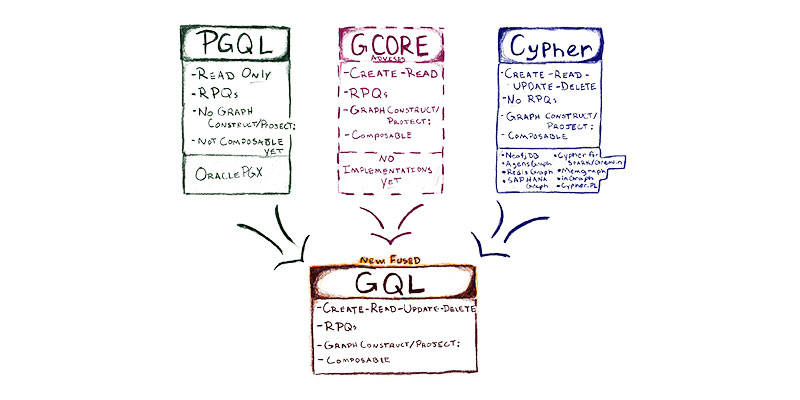 PGQL
-READ ONLY
-RPQS
-NO GRAPH
CONSTRUCT/PROJECT;
-NOT COMPOSABLE
YET
ORACLE PGX
GCORE
ADVISES
-CREATE-READ
-RPQS
-GRAPH CONSTRUCT/
PROJECT;
-COMPOSABLE
NO
IMPLEMENTATIONS
YET
Cypher
-CREATE-READ-
UPDATE-DELETE
-NO RPQS
-GRAPH CONSTRUCT/
PROJECT;
-COMPOSABLE
•Neo4j DB
•AgensGraph
•RedisGraph
•SAP HANA
Graph
•Cypher for
SPARK/Gremlin
•Memgraph
•inGraph
•Cypher.PL
NEW FUSED
GQL
-CREATE-READ-UPDATE-DELETE
-RPQS
-GRAPH CONSTRUCT/PROJECT;
-COMPOSABLE